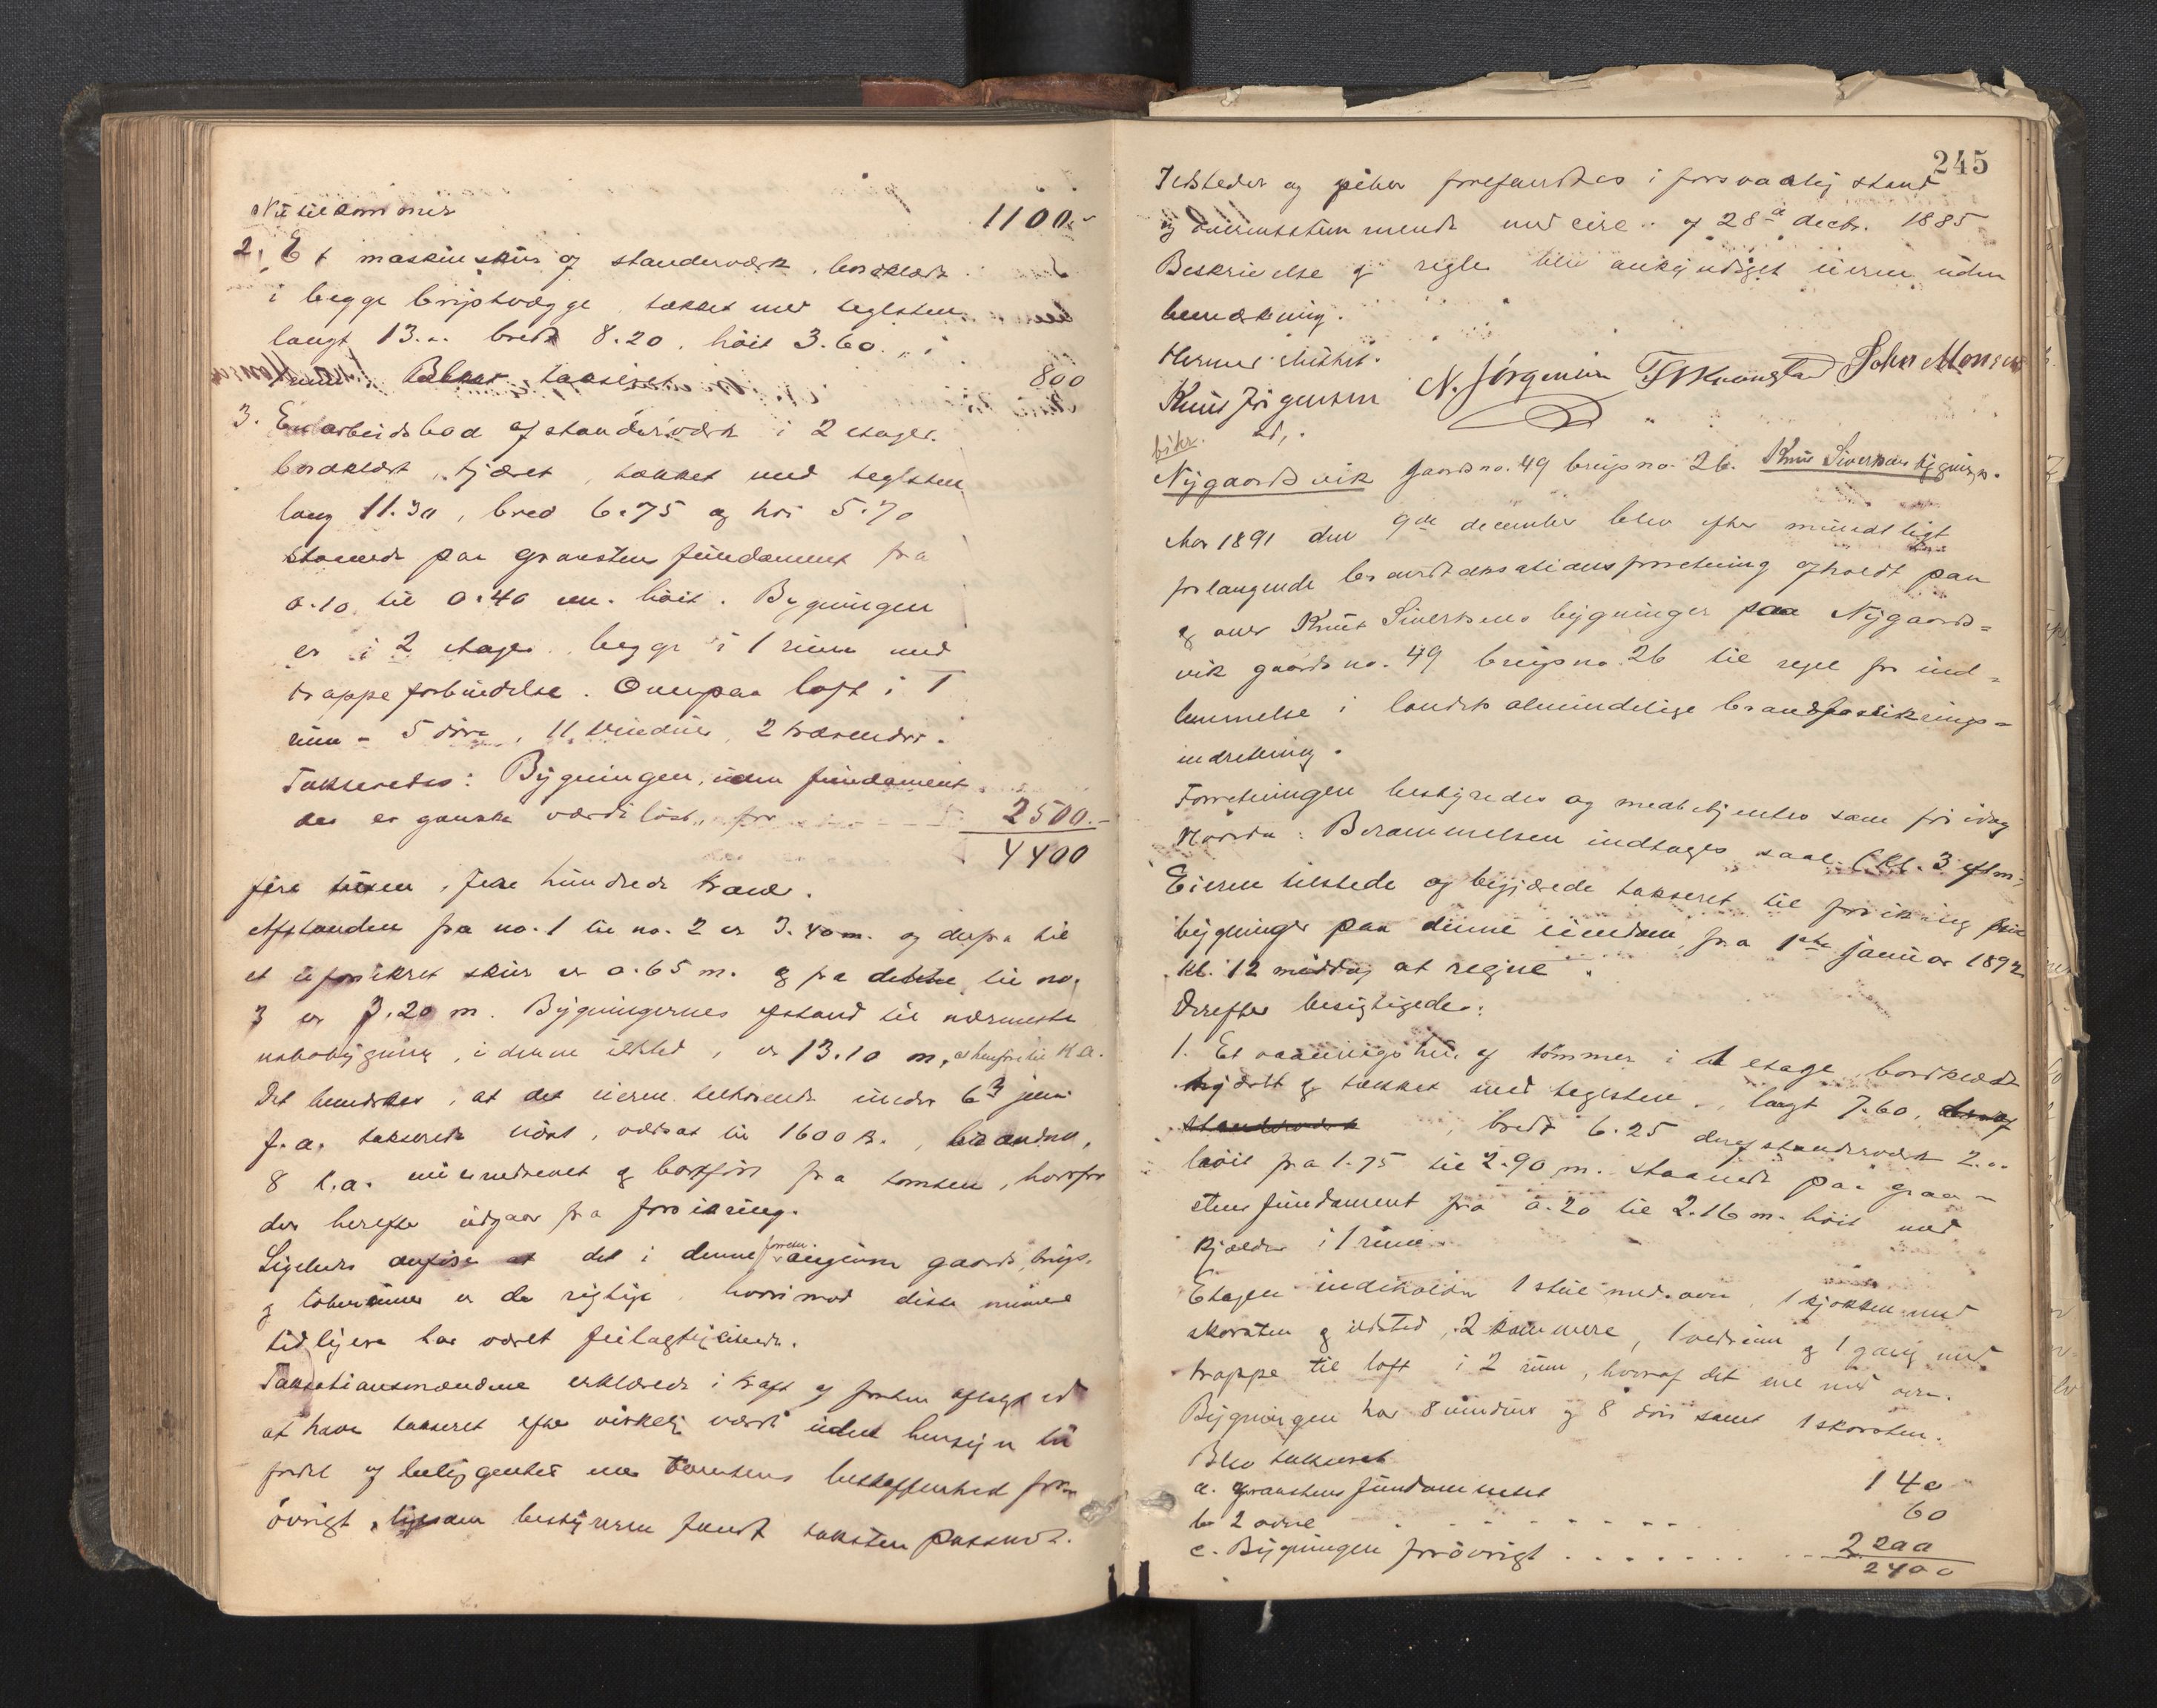 Nu tilkommer 1100.-
2. Et maskinskur af standerværk, bordklædt
i begge gavlvægge, tækket med teglsten
langt 13.00 bredt 8.20, höit 3.60.
taxeret 800
3. En arbeidsbod af standerværk i 2 etager
bordklædt, tjæret, tækket med teglsten
lang 11.30, bred 6.75 og höi 5.70
staaende paa graastens fundament fra
0.10 til 0.40 m. höit. Bygningen
er i 2 etager begge i 1 rum med
trappeforbindelse. Ovenpaa loft i 1
rum - 5 döre, 11 vinduer, 2
Takseredes: Bygningen, uden fundament
der er ganske værdilöst, for 2500.-
4400
fire tusen, fire hundrede kroner.
Afstanden fra no. 1 til no. 2 er 3.40 m. og derfra til
et uforsikret skur er 0.65 m. og fra dette til no.
3 er 3.20 m. Bygningernes afstand til nærmeste
nabobygning, i denne er 13.10 m,
Det bemærkes, at det eieren tilhörende under 6 juni
f. a. takserede værdsat til 1600 kr.,
8 d.a. nedrevet og bortfört fra tomten, hvorfor
der herefter udgaar fra forsikring.
Ligeledes anföres at det i denne forretn. angivne gaards, brugs.
og löbenumer er de rigtige, hvorimod disse numere
tidligere har været feilagtig
Taksationsmændene erklærede i kraft af forhen aflagt ed
at have takseret efter virkelig værdi uden hensyn til
fordel af beliggenhed eller tomtens beskaffenhed for-
övrigt, ligesom bestyreren fandt taksten passende.
245
Ildsteder og piber forefandtes i forsvarlig stand
og overensstemmende med circ. af 28de decbr. 1885
Beskrivelse og regler blev ankyndiget eieren uden
bemærkning.
Hermed sluttet.
Knud Jörgensen N. Jörgensen John Monsen
Nygaardsvik Gaardsno. 49 brugsno. 26. Knut Sivertsens bygninger.
Aar 1891 den 9de december blev efter mundtligt
forlangende brandtaxationsforretning afholdt paa
og over Knut Sivertsens bygninger paa Nygaards=
vik gaardsno. 49 brugsno. 26 til regel for ind=
lemmelse i landets almindelige brandforsikrings=
indretning.
Forretningen bestyredes og medbetjentes som för idag
: Berammelsen indtages saal. (kl. 3 eftm.
Eieren tilstede og begjærede takseret til forsikring sine
bygninger paa denne eiendom, fra 1ste januar 1892
kl. 12 middag at regne.
Derefter besigtigedes:
1. Et vaaningshus af tömmer i 1 etage bordklædt
tjæret og tækket med teglsten, langt 7.60,
bredt 6.25 deraf standerværk 2.00
höit fra 1.75 til 2.90 m. staaende paa graa-
stens fundament fra 0.20 til 2.16 m. höit med
kjælder i 1 rum.
Etagen indeholder 1 stue med ovn, 1 kjökken med
skorsten og ildsted, 2 kammere, 1 vedrum og 1 gang med
trappe til loft i 2 rum, hvoraf det ene med ovn.
Bygningen har 8 vinduer og 8 döre samt 1 skorsten.
Blev takseret
a. Graastens fundamentet 140
b 2 ovne 60
c. Bygningen forövrigt 2200
2400